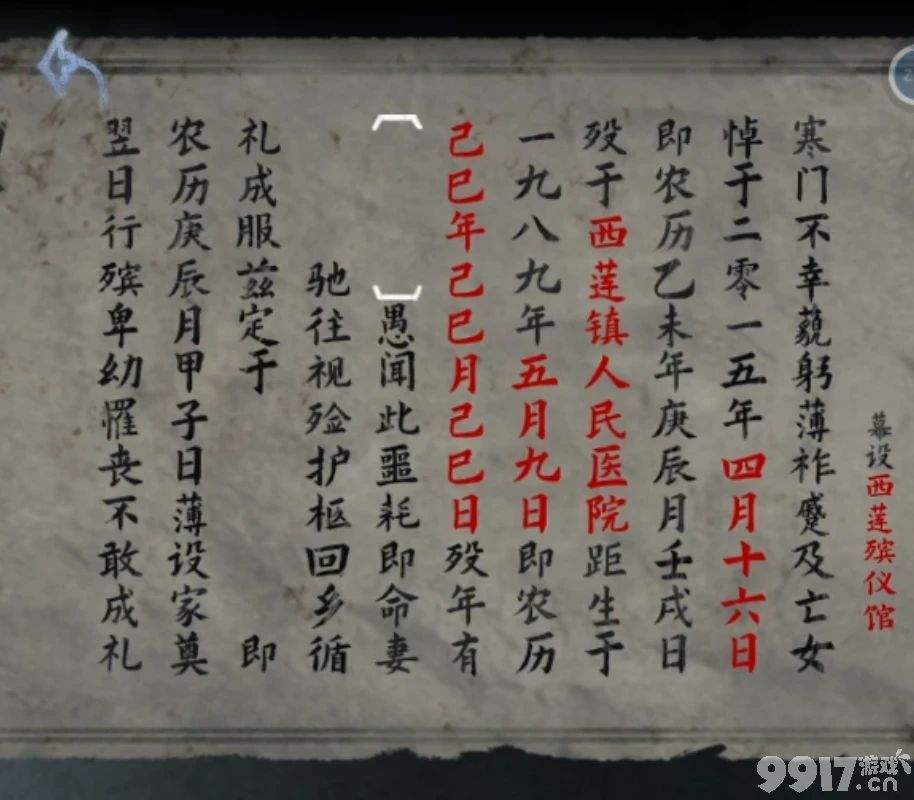 幕设西莲殡仪馆
寒门不幸藐躬薄祚蹙及亡女
悼于二零一五年四月十六日
即农历乙未年庚辰月壬戌日
殁于西莲镇人民医院距生于
一九八九年五月九日即农历
己巳年己巳月己巳日殁年有
愚闻此噩耗即命妻
驰往视殓护柩回乡循
礼成服兹定于 即
农历庚辰月甲子日薄设家奠
翌日行殡卑幼罹丧不敢成礼
9917游戏.cn